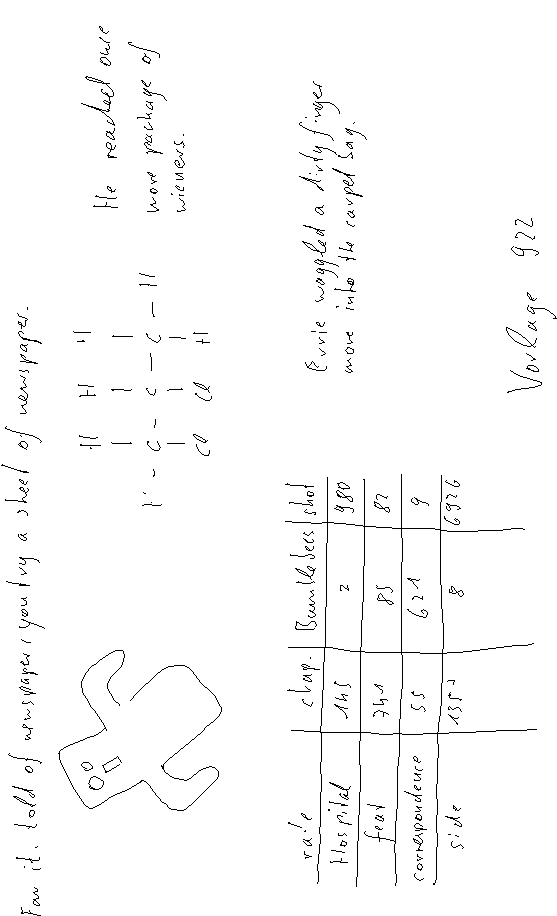 Fan it. told of newspaper, you try a sheet of newspaper.
H H H
C - C - C - H
Cl Cl H
He reached once
more package of
wieners.
rate chap. Bumblebees shot
Hospital 145 2 980
feat 741 85 82
correspondence 55 621 9
side 8 6926
Ernie waggled a dirty finger
more into the carpet bag.
Vorlage 922